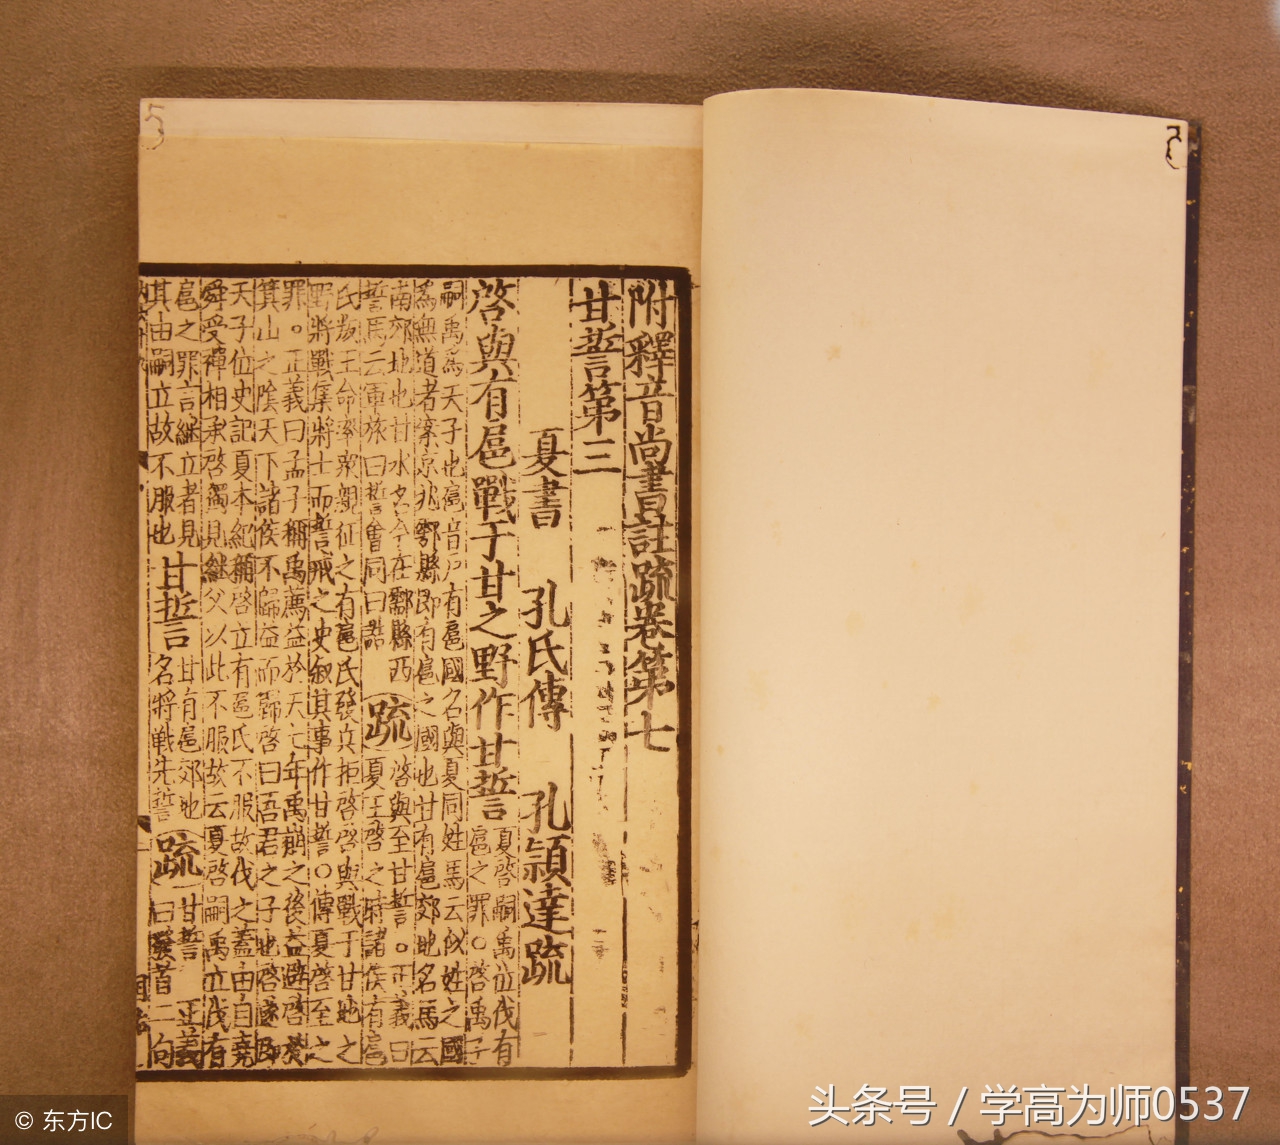 附釋音尚書註疏卷第七
甘誓第三
夏書 孔氏傳 孔穎達疏
啓與有扈戰于甘之野作甘誓
夏啓嗣禹位伐有
扈之罪〇啓禹子
嗣禹爲天子也扈音戶有扈國名與夏同姓馬云姒姓之國
爲無道者案京兆鄠縣即有扈之國也甘有扈郊地名馬云
南郊地也甘水名今在鄠縣西
誓馬云軍旅曰誓會同曰誥
疏
啓與至甘誓〇正義曰
夏王啓之時諸侯有扈
氏叛王命率衆親征之有扈氏發兵拒啓啓與戰于甘地之
野將戰集將士而誓戒之史敘其事作甘誓〇傳夏啓至之
罪〇正義曰孟子稱禹薦益於天七年禹崩之後益避啓於
箕山之陰天下諸侯不歸益而歸啓曰吾君之子也啓遂即
天子位史記夏本紀稱啓立有扈氏不服故伐之蓋由自堯
舜受禪相承啓獨見繼父以此不服故云夏啓嗣禹立伐有
扈之罪言繼立者見
其由嗣立故不服也
甘誓
甘有扈郊地
名將戰先誓
疏
甘誓 正義
曰發首二句
5
5
© 东方IC
头条号 / 学高为师0537